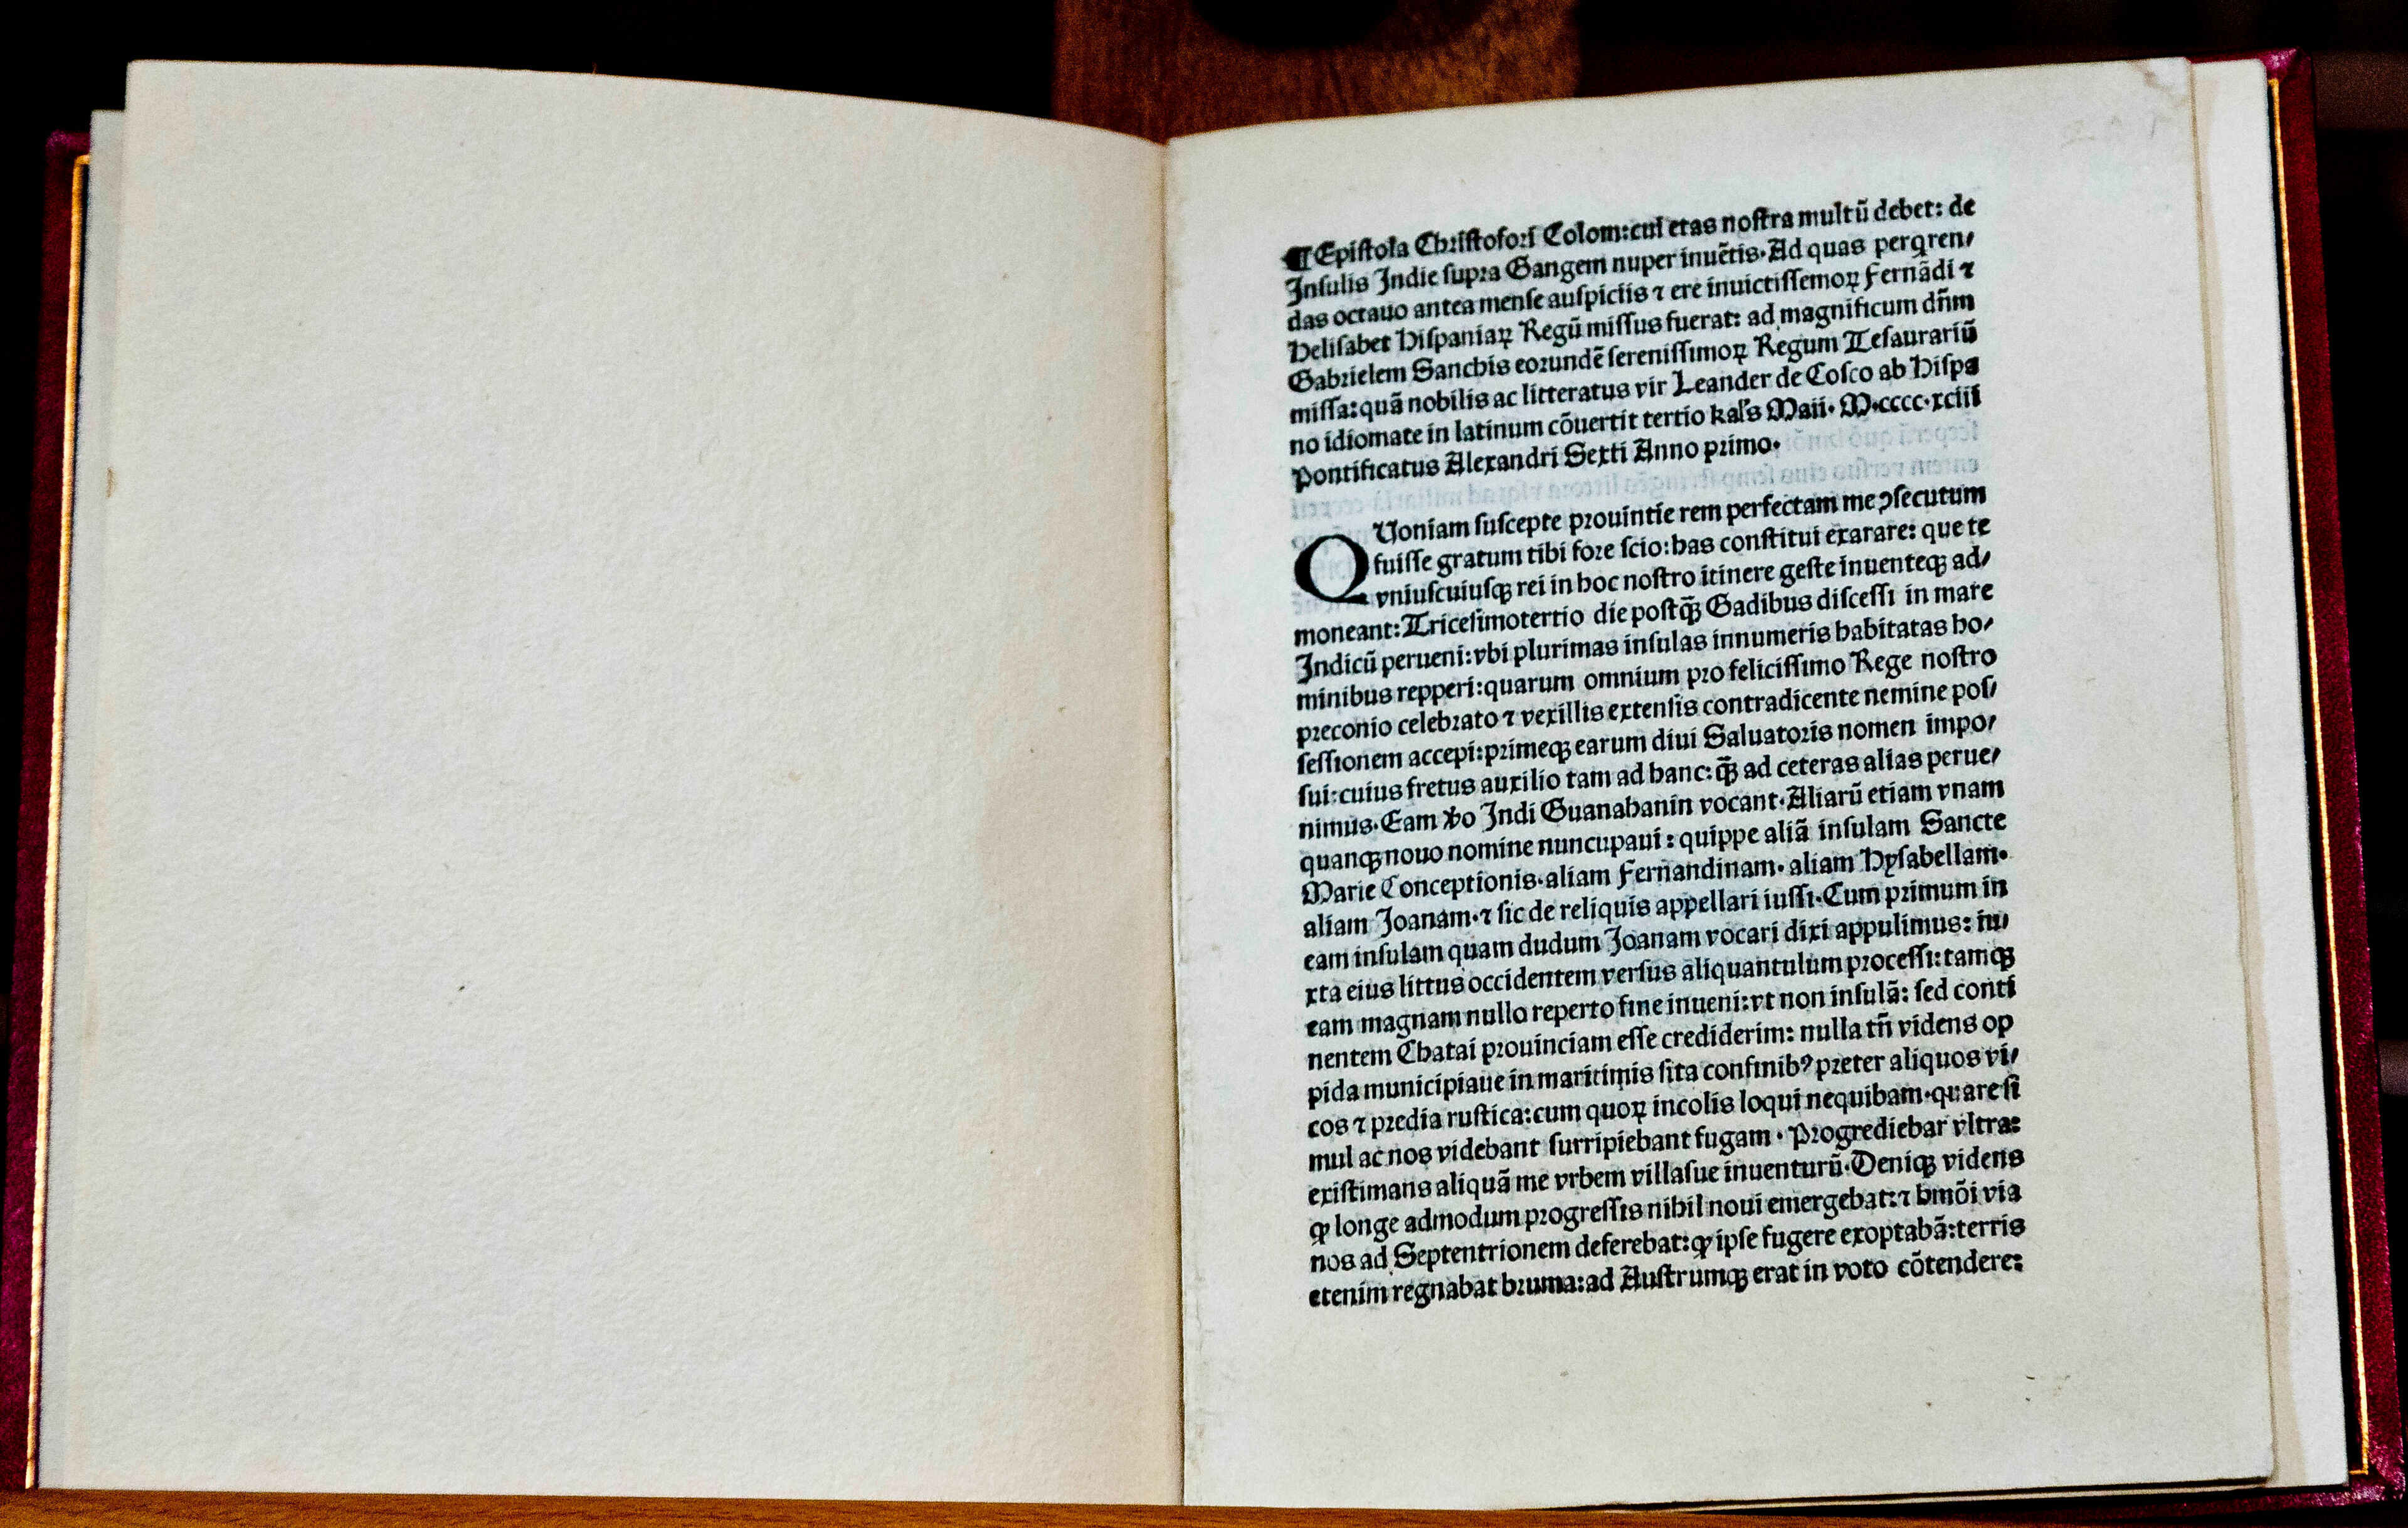 ¶Epiſtola Chriſtofori Colom:cui etas noſtra multū debet: de
Inſulis Indie ſupra Gangem nuper inuētis·Ad quas perqren⸗
das octauo antea menſe auſpiciis ⁊ ere inuictiſſemoꝝ Fernādi ⁊
Heliſabet Hiſpaniaꝝ Regū miſſus fuerat: ad magnificum dn̄m
Gabrielem Sanchis eorundē ſereniſſimoꝝ Regum Teſaurariū
miſſa:quā nobilis ac litteratus vir Leander de Coſco ab Hiſpa
no idiomate in latinum cōuertit tertio kal's Maii·M·cccc·xciii
Pontificatus Alexandri Sexti Anno primo·
QVoniam ſuſcepte prouintie rem perfectam me ↄſecutum
fuiſſe gratum tibi fore ſcio:has conſtitui exarare: que te
vniuſcuiuſqꝫ rei in hoc noſtro itinere geſte inuenteqꝫ ad⸗
moneant:Triceſimotertio die poſtqꝫ̄ Gadibus diſceſſi in mare
Indicū perueni:vbi plurimas inſulas innumeris habitatas ho⸗
minibus repperi:quarum omnium pro feliciſſimo Rege noſtro
preconio celebrato ⁊ vexillis extenſis contradicente nemine poſ⸗
ſeſſionem accepi:primeqꝫ earum diui Saluatoris nomen impo⸗
ſui:cuius fretus auxilio tam ad hanc:qꝫ̄ ad ceteras alias perue⸗
nimus·Eam ꝟo Indi Guanahanin vocant·Aliarū etiam vnam
quanqꝫ nouo nomine nuncupaui: quippe aliā inſulam Sancte
Marie Conceptionis·aliam Fernandinam· aliam Hyſabellam·
aliam Joanam·⁊ ſic de reliquis appellari iuſſi·Cum primum in
eam inſulam quam dudum Joanam vocari dixi appulimus: iu⸗
xta eius littus occidentem verſus aliquantulum proceſſi:tamqꝫ
eam magnam nullo reperto fine inueni:vt non inſulā: ſed conti
nentem Chatai prouinciam eſſe crediderim: nulla tn̄ videns op
pida municipiaue in maritimis ſita confinibꝰ preter aliquos vi⸗
cos ⁊ predia ruſtica:cum quoꝝ incolis loqui nequibam·quare ſi
mul ac nos videbant ſurripiebant fugam · Progrediebar vltra:
exiſtimans aliquā me vrbem villaſue inuenturū·Deniqꝫ videns
ꝙ longe admodum progreſſis nihil noui emergebat:⁊ hmōi via
nos ad Septentrionem deferebat:ꝙ ipſe fugere exoptabā:terris
etenim regnabat bruma:ad Auſtrumqꝫ erat in voto cōtendere: